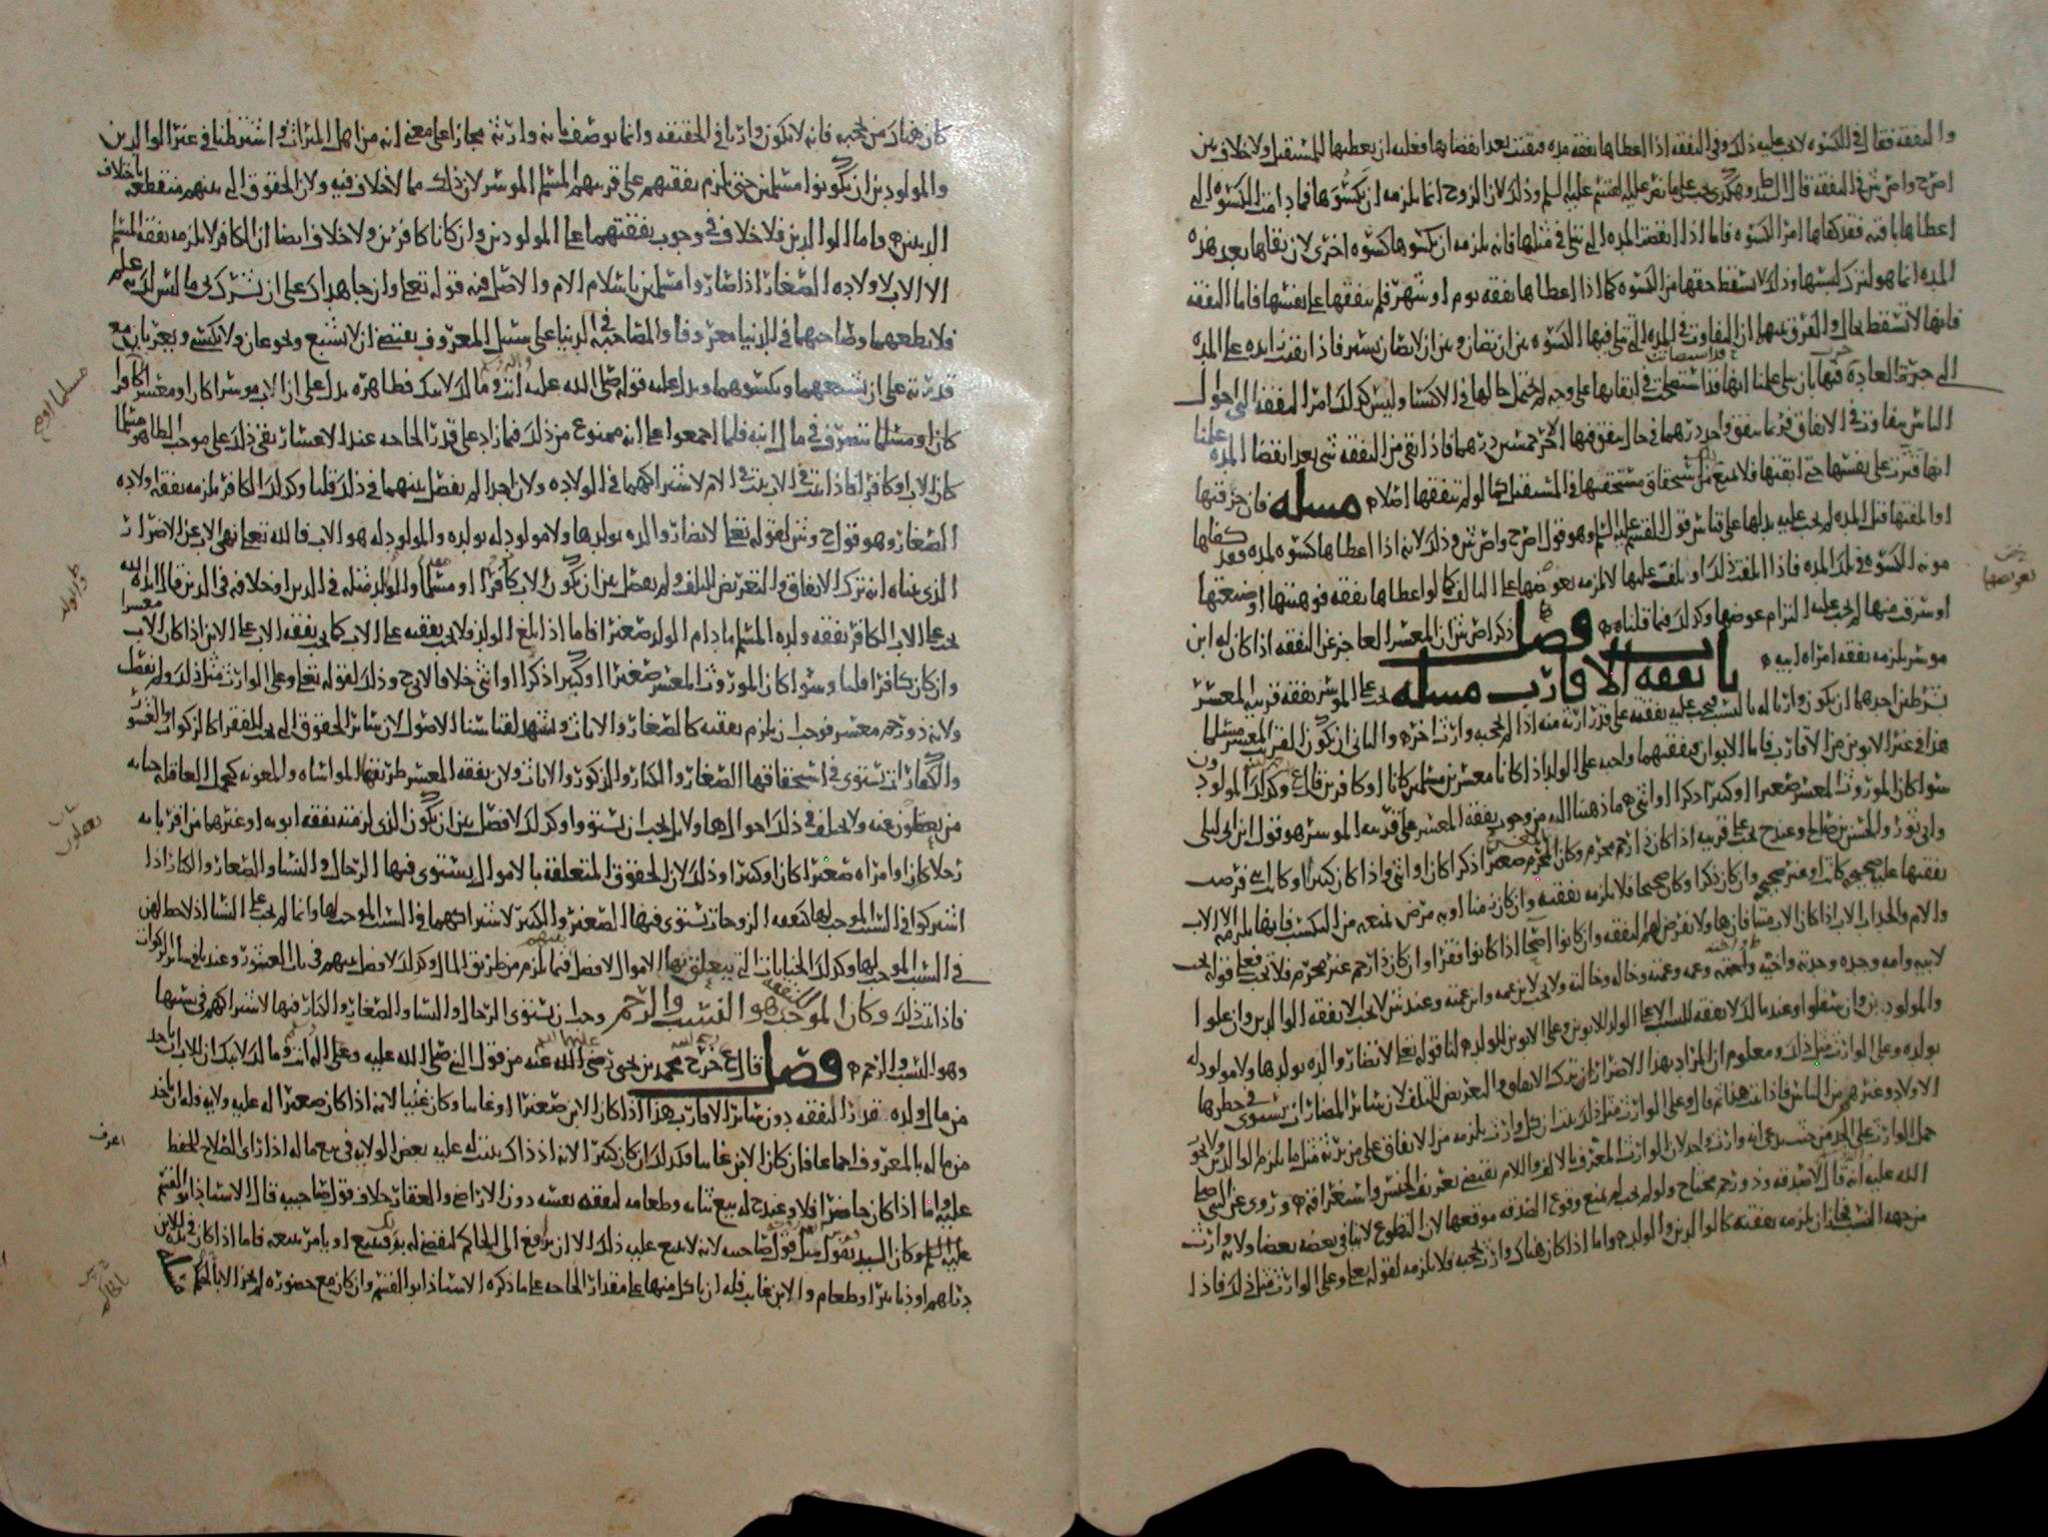 والنفقة فقال في الكسوه لا يجب عليه ذلك وفي النفقه اذا اعطاها نفقه مده فبقيت بعد انقضايها فعليه ان يعطيها للمستقبل ولا خلاف بين
اصح واصش في النفقه قال وهكذى يجب على ما نص عليه القسم عليه السلم وذلك لان الزوج انما يلزمه ان يكسوها فما دامت الكسوه التي
اعطاها باقيه فقد كفاها امر الكسوه فاما اذا انقضت المده التي تبلى في مثلها فانه يلزمه ان يكسوها كسوه اخرى لان بقاها بعد هذه
المده انما هو لترك لبسها وذلك لا يسقط حقها من الكسوه كما اذا اعطاها نفقه يوم او شهر فلم تنفقها على نفسها فاما النفقه
فانها لا تسقط بحال والفرق بينهما ان التفاوت في المده التي تبلى فيها الكسوه بين ان تصان وبين ان لا تصان يسير فاذا بقيت زايده على المده
التي جرت العاده فيها بان تبلى علمنا انها قد استقصت في ابقايها على وجه لم يحتمل حالها في الاكتسا وليس كذلك امر النفقه التي احوال
الناس تتفاوت في الانفاق فربما ينفق واحد درهما في حال ينفق فيها الاخر خمسين درهما فاذا بقي من النفقه شي بعد انقضا المده علمنا
انها قترت على نفسها حتى ابقتها فلا يمنع من استحقاق مستحقها في المستقبل كما لو لم تنفقها اصلا مسله فان خرقتها
او اتلفتها قبل المده لم يجب عليه بدلها على قياس قول القسم عليه السلم وهو قول اصح واصش وذلك لانه اذا اعطاها كسوه لمده فقد كفاها
مونه الكسوه في تلك المده فاذا اتلفت ذلك او تلفت عليها لا يلزمه تعويضها على التالف كما لو اعطاها نفقه فوهبتها او ضيعتها
او سرق منها لم يجب عليه التزام عوضها وكذلك فيما قلناه فصل ذكر اصش ان المعسر العاجز عن النفقه اذا كان له ابن
موسر يلزمه نفقه امراه ابيه
باب نفقه الاقارب مسله يجب على الموسر نفقه قريبه المعسر
بشرطين احدهما ان يكون وارثا له بالنسب فيجب عليه نفقته على قدر ارثه منه اذا لم يحجبه وارث اخر والثاني ان يكون القريب المعسر مسلما
هذا في غير الابوين من الاقارب فاما الابوان فنفقتهما واجبه على الولد اذا كانا معسرين مسلمين كانا او كافرين قال ع وكذلك المولودون
سوا كان الموروث المعسر صغيرا او كبيرا ذكرا او انثى ما ذهبنا اليه من وجوب نفقه المعسر على قريبه الموسر هو قول ابن ابي ليلى
وابي ثور والحسن بن صالح وعند ح يجب على قريبه اذا كان ذا رحم محرم وكان المحرم صغيرا ذكرا كان او انثى واذا كان كبيرا وكانت انثى فرضت
نفقتها عليه صحيحه كانت او غير صحيحه وان كان ذكرا وكان صحيحا فلا يلزمه نفقته وان كان زمنا او به مرض يمنعه من التكسب فانها تلزمه الا الاب
والام والجد اب الاب اذا كان الاب ميتا فانها تفرض لهم النفقه وان كانوا اصحا اذا كانوا فقرا وان كان ذا رحم غير محرم فلا تجب فعلى قوله تجب
لابيه وامه وجده وجدته واخيه واخته وعمه وعمته وخاله وخالته ولا تجب لابن عمه وابن عمته وعند ش لا تجب الا نفقه الوالدين وان علوا
والمولودين وان سفلوا وعند مالك لا نفقه للنسب الا على الولد للابوين وعلى الابوين للولد لنا قوله تعالى لا تضار والده بولدها ولا مولود له
بولده وعلى الوارث مثل ذلك ومعلوم ان المراد بهذا الاضرار ان يترك الانفاق والتعريض للتلف لان ساير المضار ان يستوى في حظرها
الاولاد وغيرهم من الناس فاذا ثبت هذا ثم قال وعلى الوارث مثل ذلك ثبت ان كل وارث يلزمه من الانفاق على من يرثه مثل ما يلزم الوالدين ولا يجوز
حمل الوارث على الجد من حيث يدعى انه وارث واحد لان الوارث المعرف بالالف واللام يقتضي تعريف الجنس واستغراقه وروي عن النبي صلى
الله عليه انه قال لا صدقه وذو رحم محتاج ولو لم يجب لم يمنع وقوع الصدقه موقعها لان التطوع لا ينافي بعضه بعضا ولانه وارث
من جهه النسب فجاز ان يلزمه نفقته كالوالدين والولد واما اذا كان هناك وارث يحجبه فلا يلزمه لقوله تعالى وعلى الوارث مثل ذلك فاذا
كان هناك من يحجبه فانه لا يكون وارثا في الحقيقه وانما يوصف بانه وارث مجازا على معنى انه من اهل الميراث واشترطنا في غير الوالدين
والمولودين ان يكونوا مسلمين حتى يلزم نفقتهم على قريبهم المسلم الموسر لان ذلك مما لا خلاف فيه ولان الحقوق التي بينهم منقطعه باختلاف
الدين واما الوالدين فلا خلاف في وجوب نفقتهما على المولودين وان كانا كافرين ولا خلاف ايضا ان الكافر لا يلزمه نفقه المسلم
الا الاب لاولاده الصغار اذا صاروا مسلمين باسلام الام والاصل فيه قوله تعالى وان جاهداك على ان تشرك بي ما ليس لك به علم
فلا تطعهما وصاحبهما في الدنيا معروفا والمصاحبه في الدنيا على سبيل المعروف يقتضي ان لا تشبع ويجوعان ولا تكتسي ويعريان مع
قدرته على ان يشبعهما ويكسوهما ويدل عليه قوله صلى الله عليه انت وما لك لابيك فظاهره يدل على ان الاب موسرا كان او معسرا كافرا
كان او مسلما يتصرف في مال ابنه فلما اجمعوا على انه ممنوع من ذلك فيما زاد على قدر الحاجه عند الاعسار بقي ذلك على موجب الظاهر مسلما
كان الاب او كافرا فاذا ثبت في الاب ثبت في الام لاشتراكهما في الولاده ولان احدا لم يفصل بينهما في ذلك قلنا وكذلك الكافر يلزمه نفقه اولاده
الصغار وهو قول ح وش لقوله تعالى لا تضار والده بولدها ولا مولود له بولده والمولود له هو الاب فالله تعالى نهى الاب عن الاضرار
الذي بيناه انه ترك الانفاق والتعريض للتلف ولم يفصل بين ان يكون الاب كافرا او مسلما والولد مثله في الدين او خلافه في الدين قال ايده الله
يجب على الاب الكافر نفقه ولده المسلم ما دام الولد صغيرا فاما اذا بلغ الولد فلا يجب نفقته على الاب كما يجب نفقه الاب على الابن اذا كان الاب معسرا
وان كان كافرا قلنا وسوا كان الموروث المعسر صغيرا او كبيرا ذكرا او انثى خلافا لابي ح وذلك لقوله تعالى وعلى الوارث مثل ذلك ولم يفصل
ولانه ذو رحم معسر فوجب ان يلزم نفقته كالصغار والاناث ويشهد لقياسنا الاصول لان ساير الحقوق التي تجب للفقرا كالزكوات والعشور
والكفارات يستوي في استحقاقها الصغار والكبار والذكور والاناث ولان نفقه المعسر طريقها المواساه والمعونه كتحمل العاقله جنايه
من يعقلون عنه ولا يختلف في ذلك احوالها ولا بد يجب ان يستووا وكذلك لا فصل بين ان يكون الذي لزمته نفقه ابويه او غيرهما من اقربايه
رجلا كان او امراه صغيرا كان او كبيرا وذلك لان الحقوق المتعلقه بالاموال يستوي فيها الرجال والنسا والصغار والكبار اذا
اشتركوا في السبب الموجب لها كنفقه الزوجات يستوي فيها الصغير والكبير لاشتراكهما في السبب الموجب لها وانما لم يجب على النسا اذ لا حظ لهن
في السبب الموجب لها وكذلك الجنايات التي يتعلق بها الاموال لا فصل فيما يلزم من طريق المال وكذلك لا فصل بينهم في باب العشور وعندنا في ساير الزكوات
فاذا ثبت ذلك وكان الموجب للنفقه هو النسب والرحم وجب ان يستوي الرجال والنسا والصغار والكبار فيها لاشتراكهم في سببها
وهو النسب والرحم فصل قال ع خرج محمد بن يحيى رضي الله عنه من قول النبي صلى الله عليه وعلى اله انت وما لك لابيك ان للاب ياخذ
من مال ولده قدر النفقه دون ساير الاقارب هذا اذا كان الابن صغيرا او غايبا وكان غنيا لانه اذا كان صغيرا له عليه ولايه فله ان ياخذ
من ماله بالمعروف اجماعا فان كان الابن غايبا فكذلك وان كان كبيرا لانه اذ ذاك يثبت له عليه بعض الولايه في بيع ماله اذا راى الصلاح للحفظ
عليه واما اذا كان حاضرا فلا وعند ح له بيع ثيابه وطعامه لنفقه نفسه دون الاراضي والعقار خلاف قول صاحبيه قال الاستاذ ابو القسم
عليه السلم وكان السيد يقول مثل قول صاحبيه لانه لا يبيع عليه ذلك الا ان يرافع الى الحاكم ليقضي له فيبيع او يامر ببيعه فاما اذا كان في يده للابن
دراهم او دنانير او طعام والابن غايب فله ان ياكل منها على مقدار الحاجه على ما ذكره الاستاذ ابو القسم وان كان مع حضوره لم يجز الا بالحكم